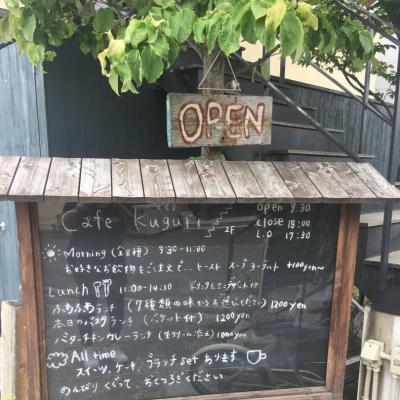 OPEN
Cafe Kuguri 2F
open 9:30
close 18:00
L.O 17:30
Morning (全8種) 9:30-11:00
お好きなお飲物をご注文で… トースト スープ ヨーグルト +100yen~
Lunch 11:00-14:30
ふわふわランチ (7種類の味からお選びください) 1200yen
本日のパスタランチ (バケット付) 1200yen
バターチキンカレーランチ (生クリーム) 1000yen
All time
スイーツ、ケーキ、ランチset あります
のんびりくぐって、おくつろぎください